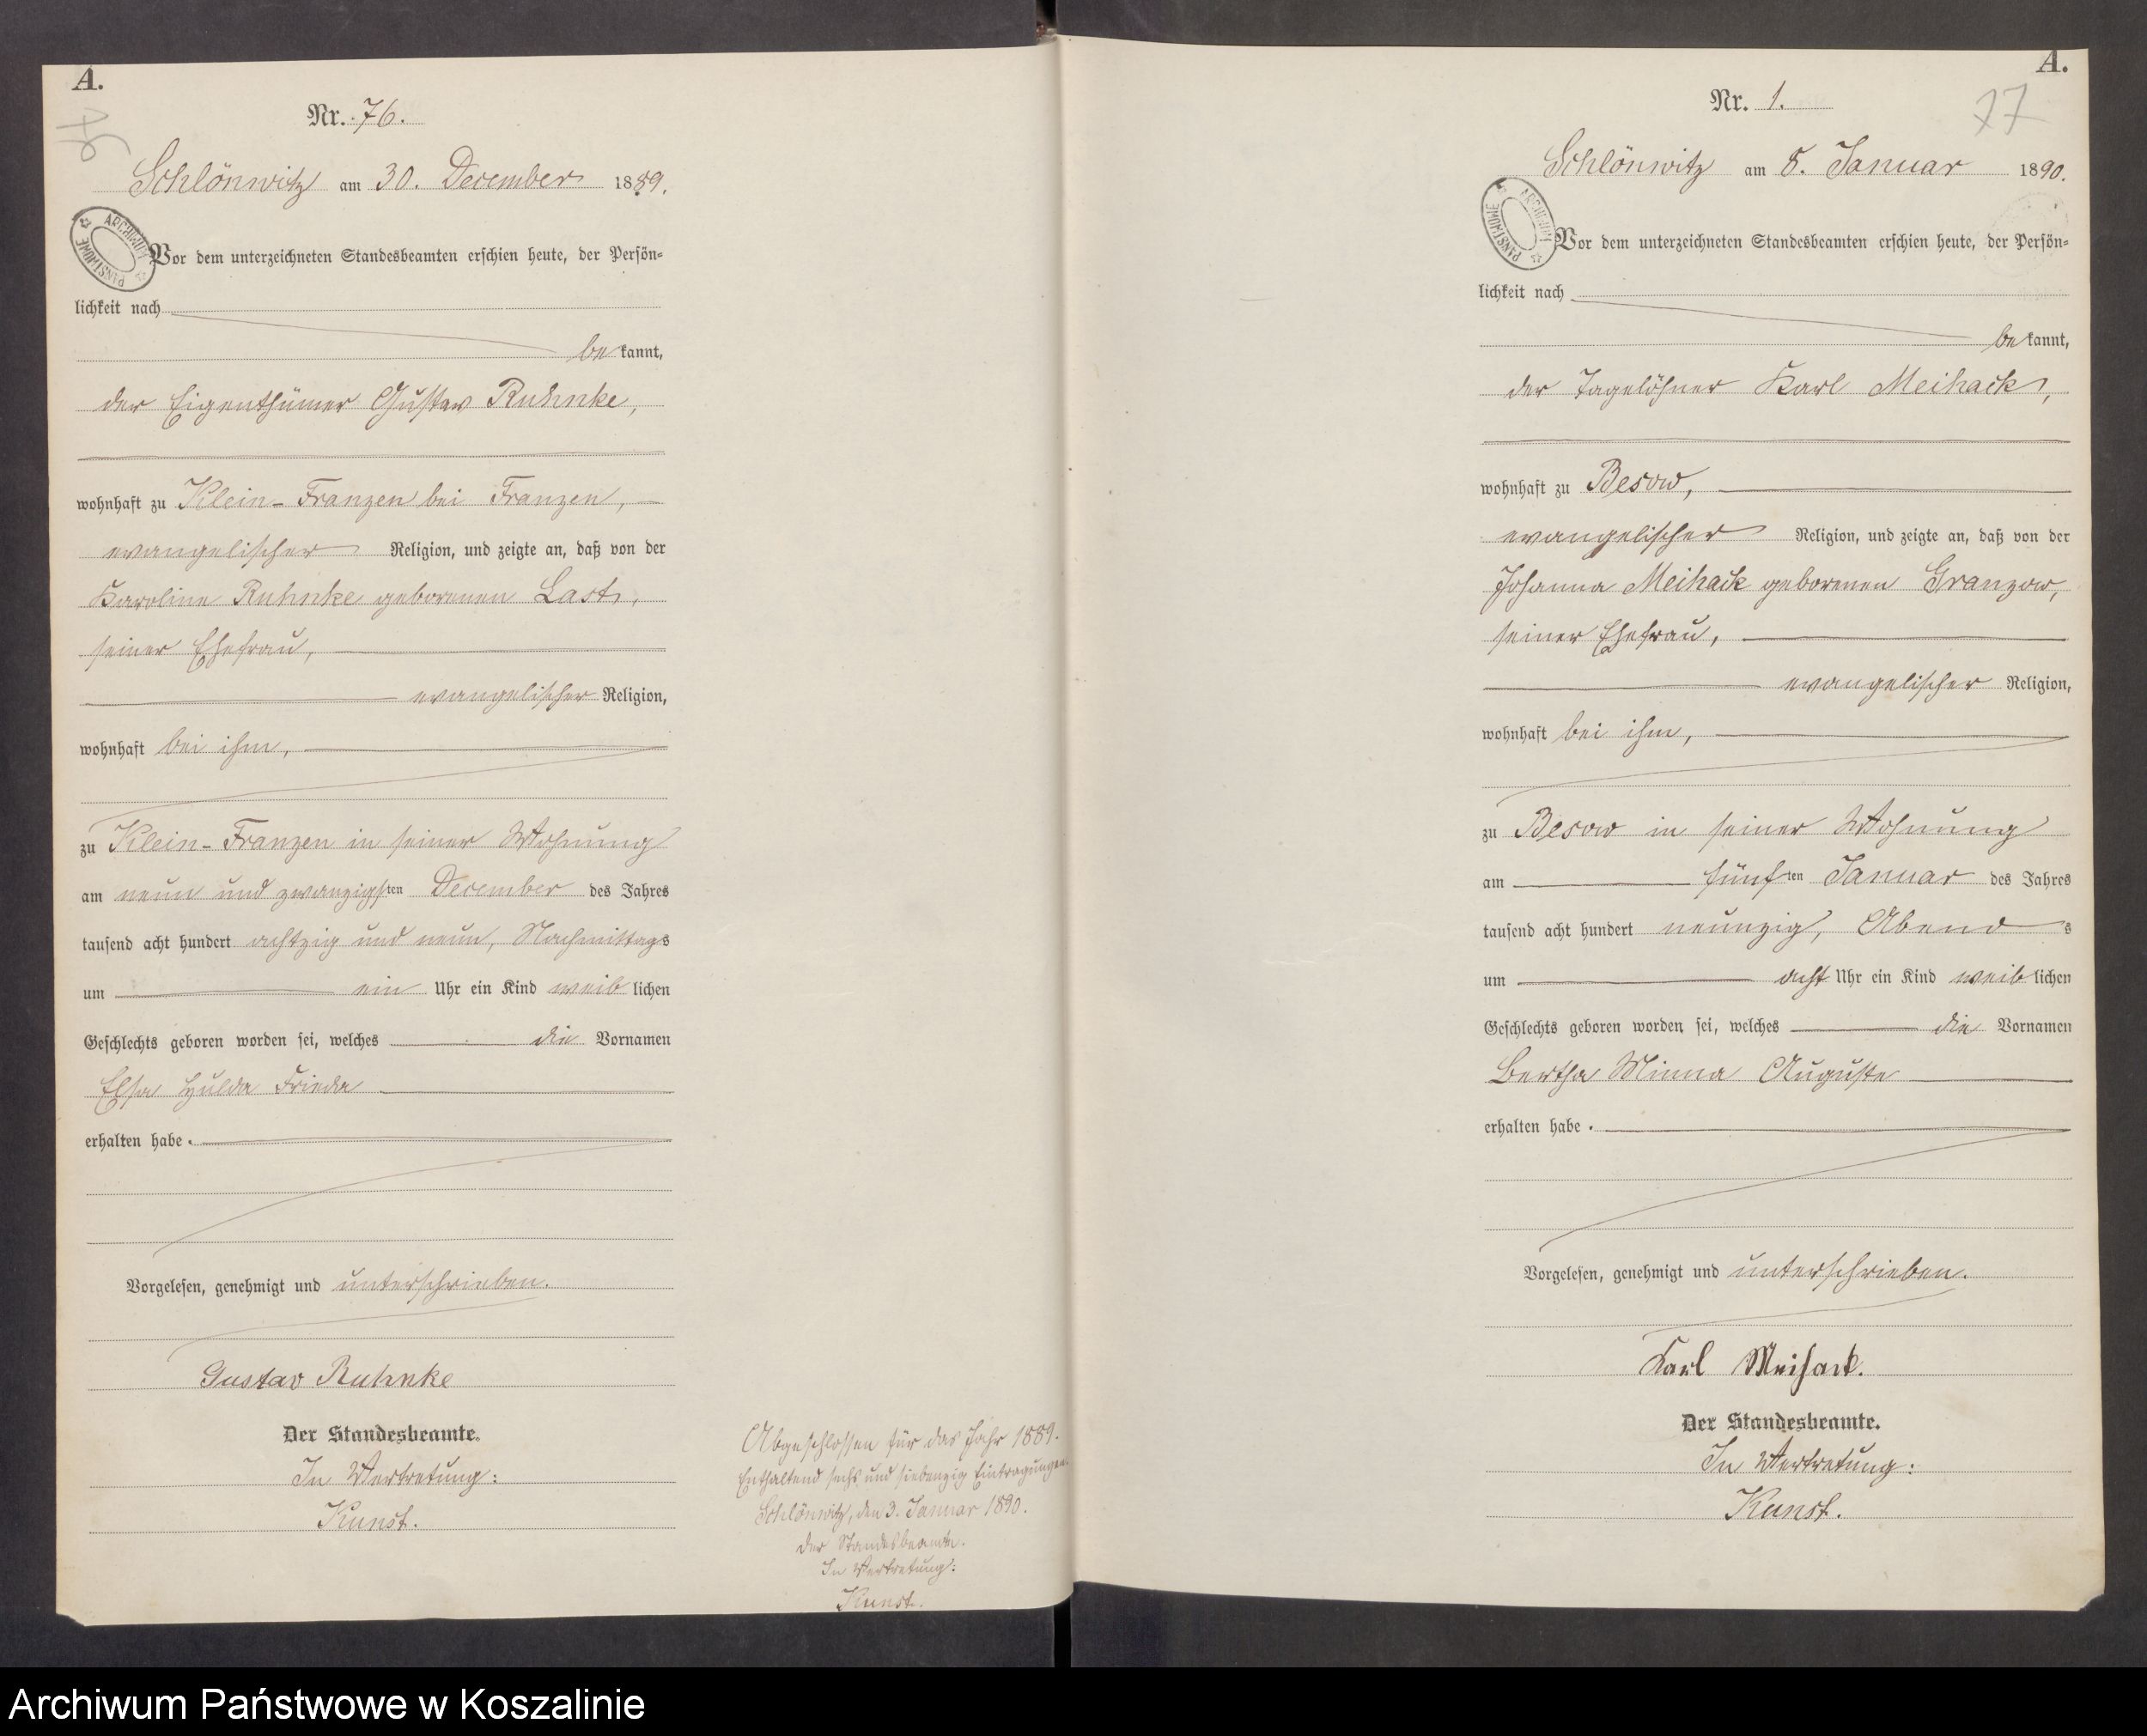 A.
76
Nr. 76.
Schlönwitz am 30. December 1889.
ARCHIWUM PAŃSTWOWE
Vor dem unterzeichneten Standesbeamten erschien heute, der Persön-
lichkeit nach
be kannt,
der Eigenthümer Gustav Ruhnke,
wohnhaft zu Klein-Franzen bei Franzen,
evangelischer Religion, und zeigte an, daß von der
Karoline Ruhnke geborenen Last,
seiner Ehefrau,
evangelischer Religion,
wohnhaft bei ihm,
zu Klein-Franzen in seiner Wohnung
am neun und zwanzigsten December des Jahres
tausend acht hundert achtzig und neun, Nachmittags
um ein Uhr ein Kind weib lichen
Geschlechts geboren worden sei, welches die Vornamen
Elsa Hulda Frieda
erhalten habe.
Vorgelesen, genehmigt und unterschrieben.
Gustav Ruhnke
Der Standesbeamte.
In Vertretung:
Kunst.
Abgeschlossen für das Jahr 1889.
Enthaltend sechs und siebenzig Eintragungen.
Schlönwitz, den 3. Januar 1890.
Der Standesbeamte.
In Vertretung:
Kunst.
A.
77
Nr. 1.
Schlönwitz am 8. Januar 1890.
ARCHIWUM PAŃSTWOWE
Vor dem unterzeichneten Standesbeamten erschien heute, der Persön-
lichkeit nach
be kannt,
der Tagelöhner Karl Meihack,
wohnhaft zu Besow,
evangelischer Religion, und zeigte an, daß von der
Johanna Meihack geborenen Granzow,
seiner Ehefrau,
evangelischer Religion,
wohnhaft bei ihm,
zu Besow in seiner Wohnung
am fünf ten Januar des Jahres
tausend acht hundert neunzig, Abend s
um acht Uhr ein Kind weib lichen
Geschlechts geboren worden sei, welches die Vornamen
Bertha Minna Auguste
erhalten habe.
Vorgelesen, genehmigt und unterschrieben.
Karl Meihack.
Der Standesbeamte.
In Vertretung:
Kunst.
Archiwum Państwowe w Koszalinie